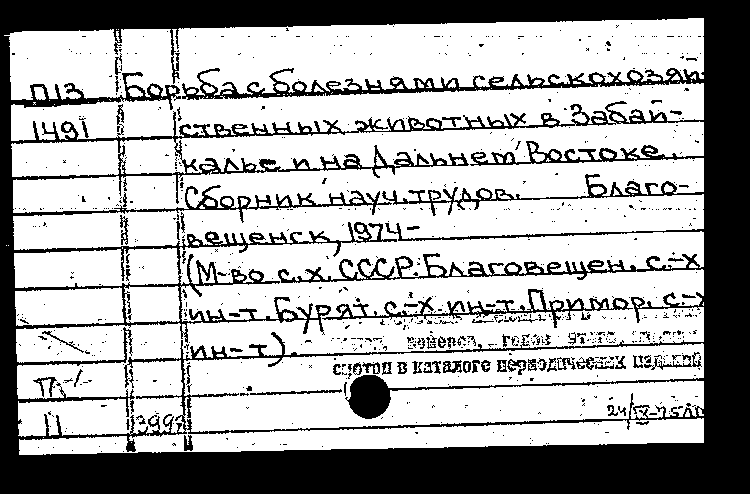 П13 Борьба с болезнями сельскохозяй-
1491 ственных животных в Забай-
калье и на Дальнем Востоке.
Сборник науч. трудов. Благо-
вещенск, 1974-
(М-во с.х. СССР. Благовещен. с.-х
ин-т. Бурят. с.-х. ин-т. Примор. с.-х
ин-т).
номеров, годов этого
смотри в каталоге периодических изданий
П 3998 24/IX-75